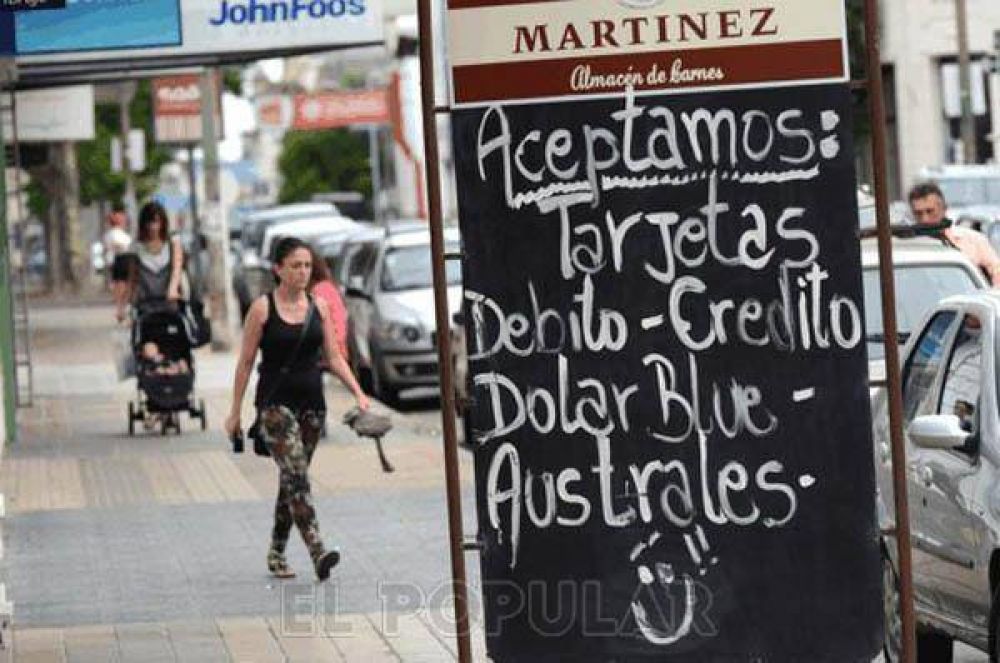 JohnFoo's
MARTINEZ
Almacén de Carnes
Aceptamos:
Tarjetas
Debito - Credito
Dolar Blue -
Australes.
EL POPULAR